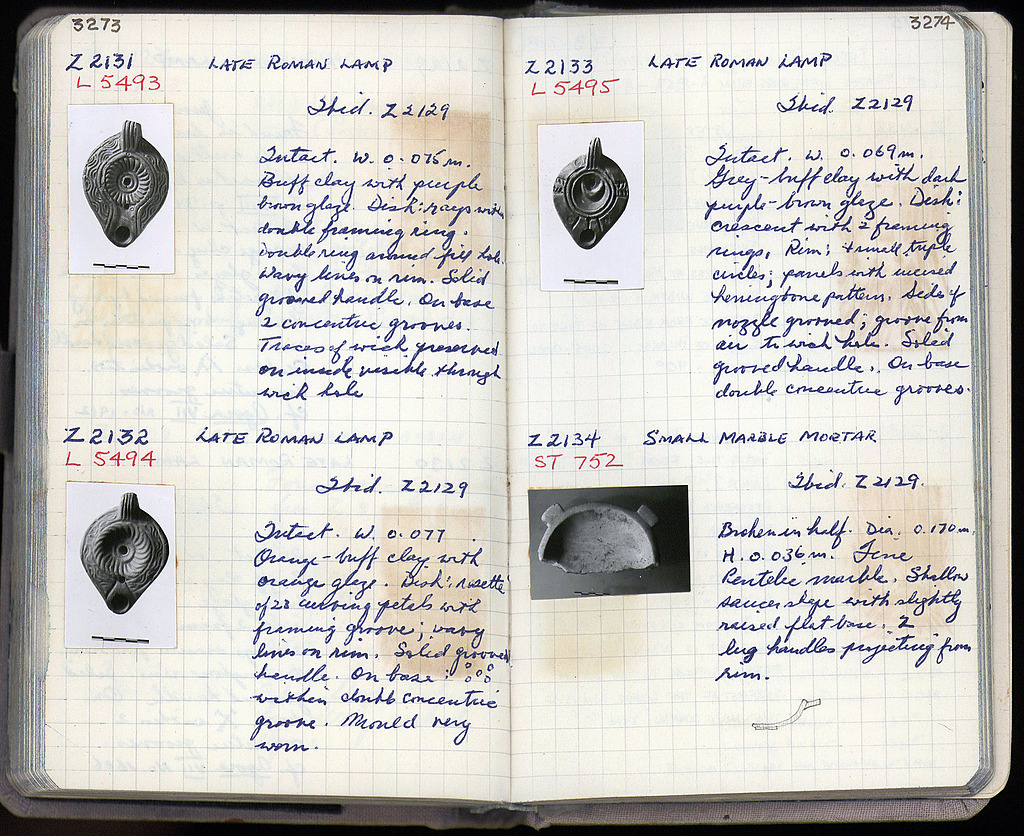 3273
Z 2131 LATE ROMAN LAMP
L 5493
Ibid. Z 2129
Intact. W. 0.075 m.
Buff clay with purple
brown glaze. Disk: rays with
double framing ring.
Double ring around fill hole.
Wavy lines on rim. Solid
grooved handle. On base
2 concentric grooves.
Traces of wick preserved
on inside visible through
wick hole
Z 2132 LATE ROMAN LAMP
L 5494
Ibid. Z 2129
Intact. W. 0.077
Orange-buff clay with
orange glaze. Disk: rosette
of 28 curving petals with
framing groove; wavy
lines on rim. Solid grooved
handle. On base:
within double concentric
groove. Mould very
worn.
3274
Z 2133 LATE ROMAN LAMP
L 5495
Ibid. Z 2129
Intact. W. 0.069 m.
Grey-buff clay with dark
purple-brown glaze. Disk:
crescent with 2 framing
rings. Rim: 4 small triple
circles; panels with incised
herringbone pattern. Sides of
nozzle grooved; groove from
air to wick hole. Solid
grooved handle. On base
double concentric grooves.
Z 2134 SMALL MARBLE MORTAR
ST 752
Ibid. Z 2129.
Broken in half. Dia. 0.170 m.
H. 0.036 m. Fine
Pentelic marble. Shallow
saucer shape with slightly
raised flat base. 2
lug handles projecting from
rim.